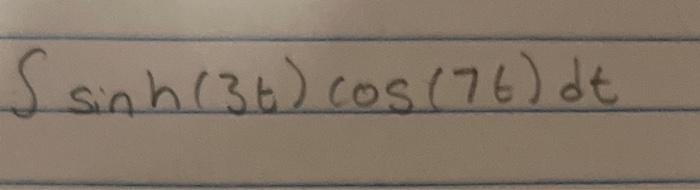 ∫ sinh(3t) cos(7t) dt